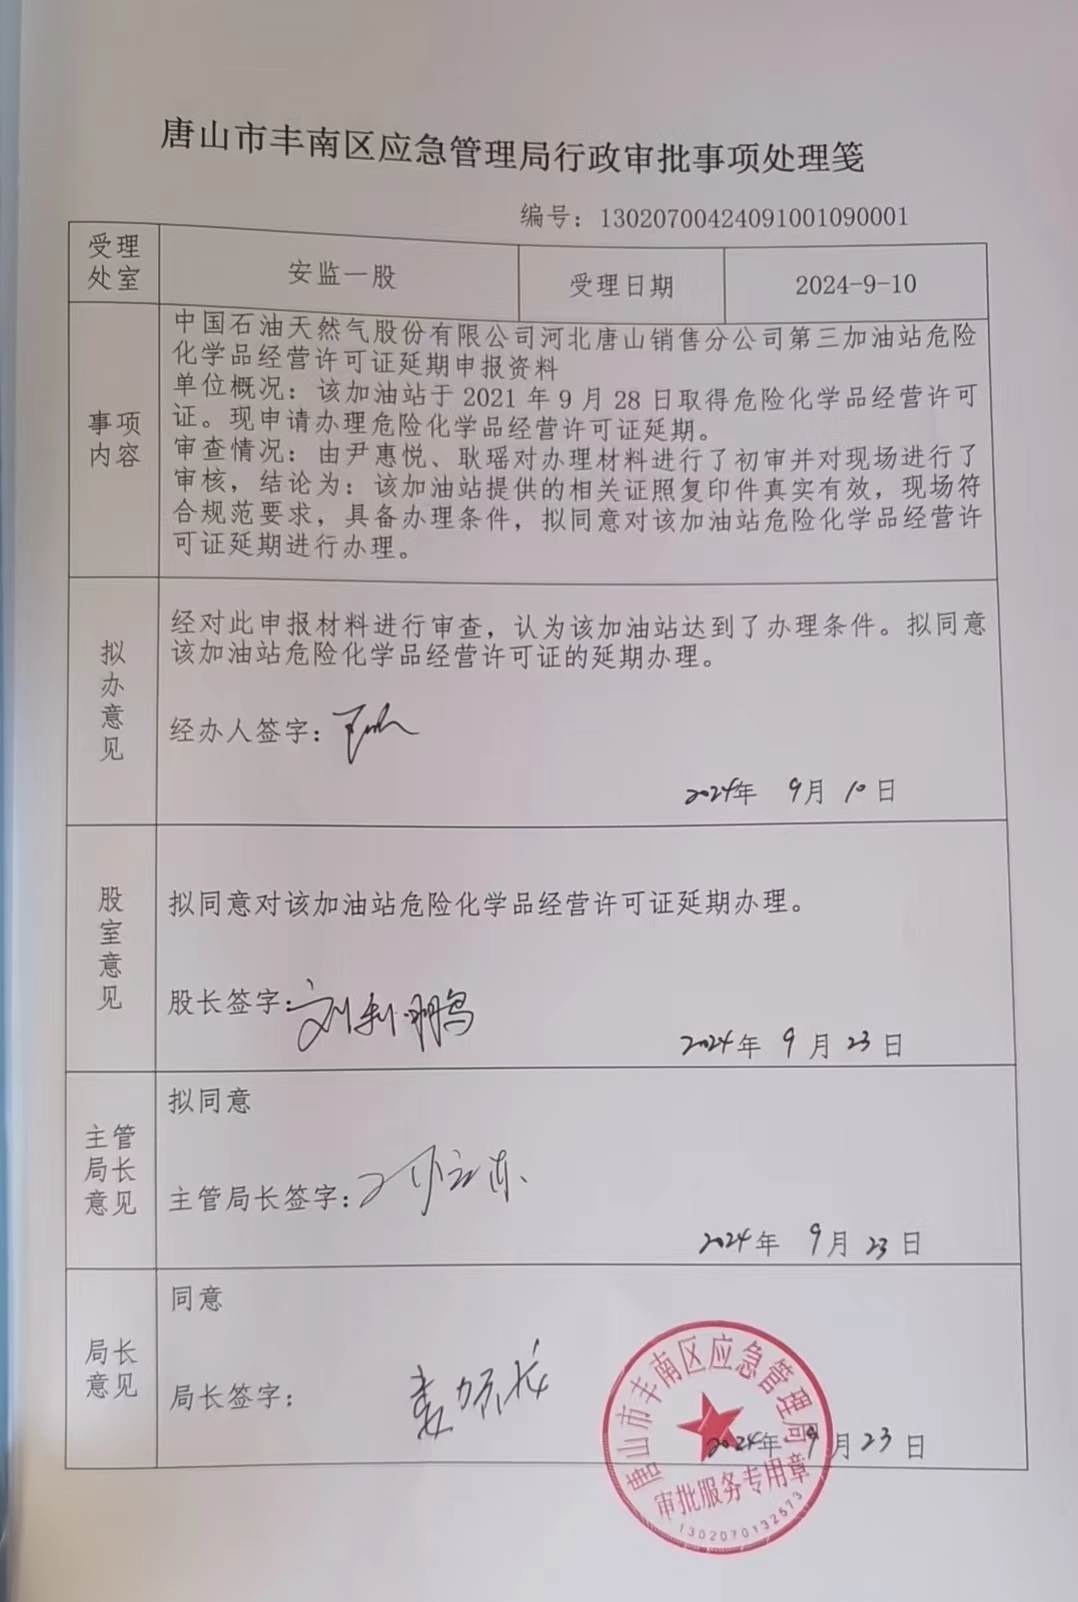 唐山市丰南区应急管理局行政审批事项处理笺
编号：13020700424091001090001
受理处室
安监一股
受理日期
2024-9-10
事项内容
中国石油天然气股份有限公司河北唐山销售分公司第三加油站危险
化学品经营许可证延期申报资料
单位概况：该加油站于 2021 年 9 月 28 日取得危险化学品经营许可
证。现申请办理危险化学品经营许可证延期。
审查情况：由尹惠悦、耿瑶对办理材料进行了初审并对现场进行了
审核，结论为：该加油站提供的相关证照复印件真实有效，现场符
合规范要求，具备办理条件，拟同意对该加油站危险化学品经营许
可证延期进行办理。
拟办意见
经对此申报材料进行审查，认为该加油站达到了办理条件。拟同意
该加油站危险化学品经营许可证的延期办理。
经办人签字：
2024年 9月 10日
股室意见
拟同意对该加油站危险化学品经营许可证延期办理。
股长签字：刘利鹏
2024年 9月 23日
主管局长意见
拟同意
主管局长签字：
2024年 9月 23日
局长意见
同意
局长签字：
2024年 9月 23日
唐山市丰南区应急管理局
审批服务专用章
1302070132573